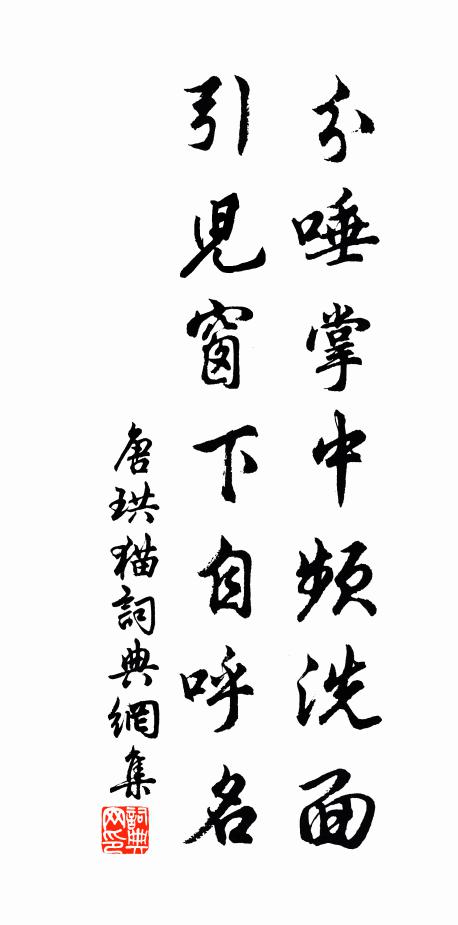 分唾掌中頻洗面
引兒窗下自呼名
唐珙猫詞典網集
詞典网印